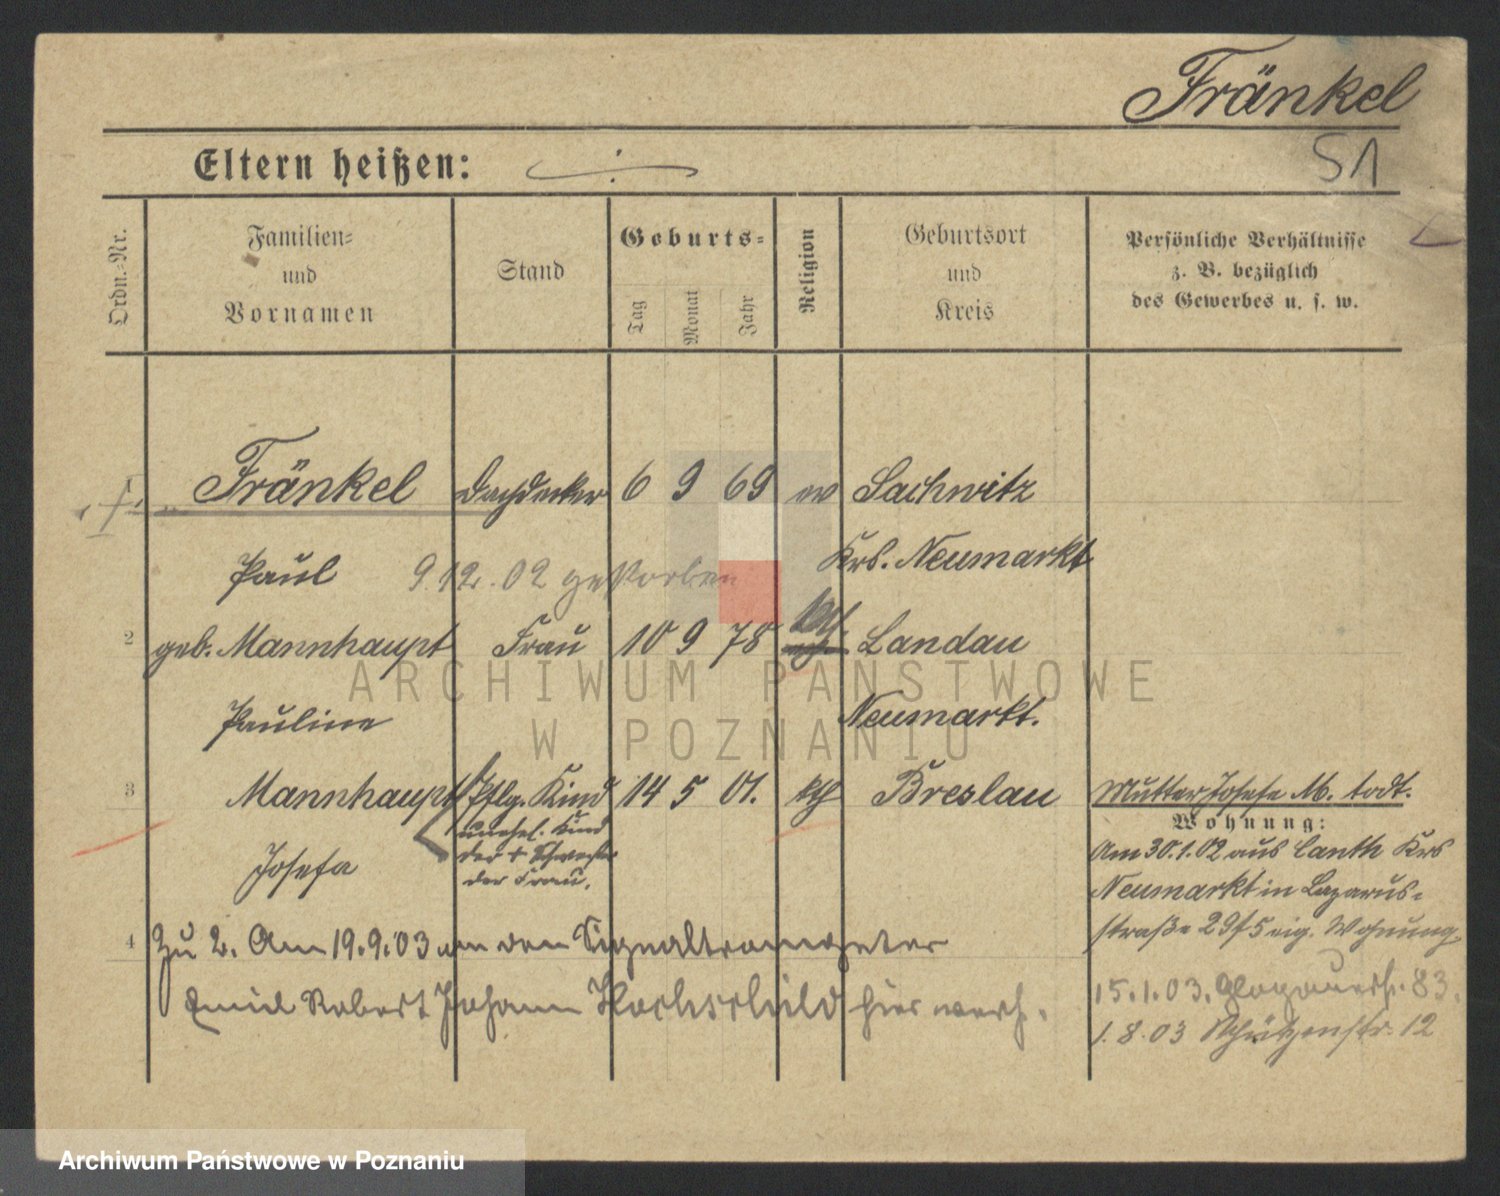 Fränkel
51
Eltern heißen: ÷
Ordn.-Nr.
Familien-
und
Vornamen
Stand
Geburts-
Tag
Monat
Jahr
Religion
Geburtsort
und
Kreis
Persönliche Verhältnisse
z. B. bezüglich
des Gewerbes u. s. w.
1. Fränkel Dachdecker 6 9 69 ev Sachwitz
Paul 9.12.02 gestorben Krs. Neumarkt
2 geb. Mannhaupt Frau 10 9 78 kth Landau
Pauline Neumarkt.
3 Mannhaupt Pflg. Kind 14 5 01. kth Breslau Mutter Josefa M. todt.
unehel. Kind
der + Schwester
Josefa der Frau.
Wohnung:
Am 30.1.02 aus Canth Krs
Neumarkt in Lazarus-
straße 29 f 5 eig. Wohnung
4 Zu 2. Am 19.9.03 an den Signaltrompeter
Emil Robert Johann Hochschild hier verh.
15.1.03. Glogauerst. 83.
1.8.03 Schützenstr. 12
ARCHIWUM PAŃSTWOWE
W POZNANIU
Archiwum Państwowe w Poznaniu